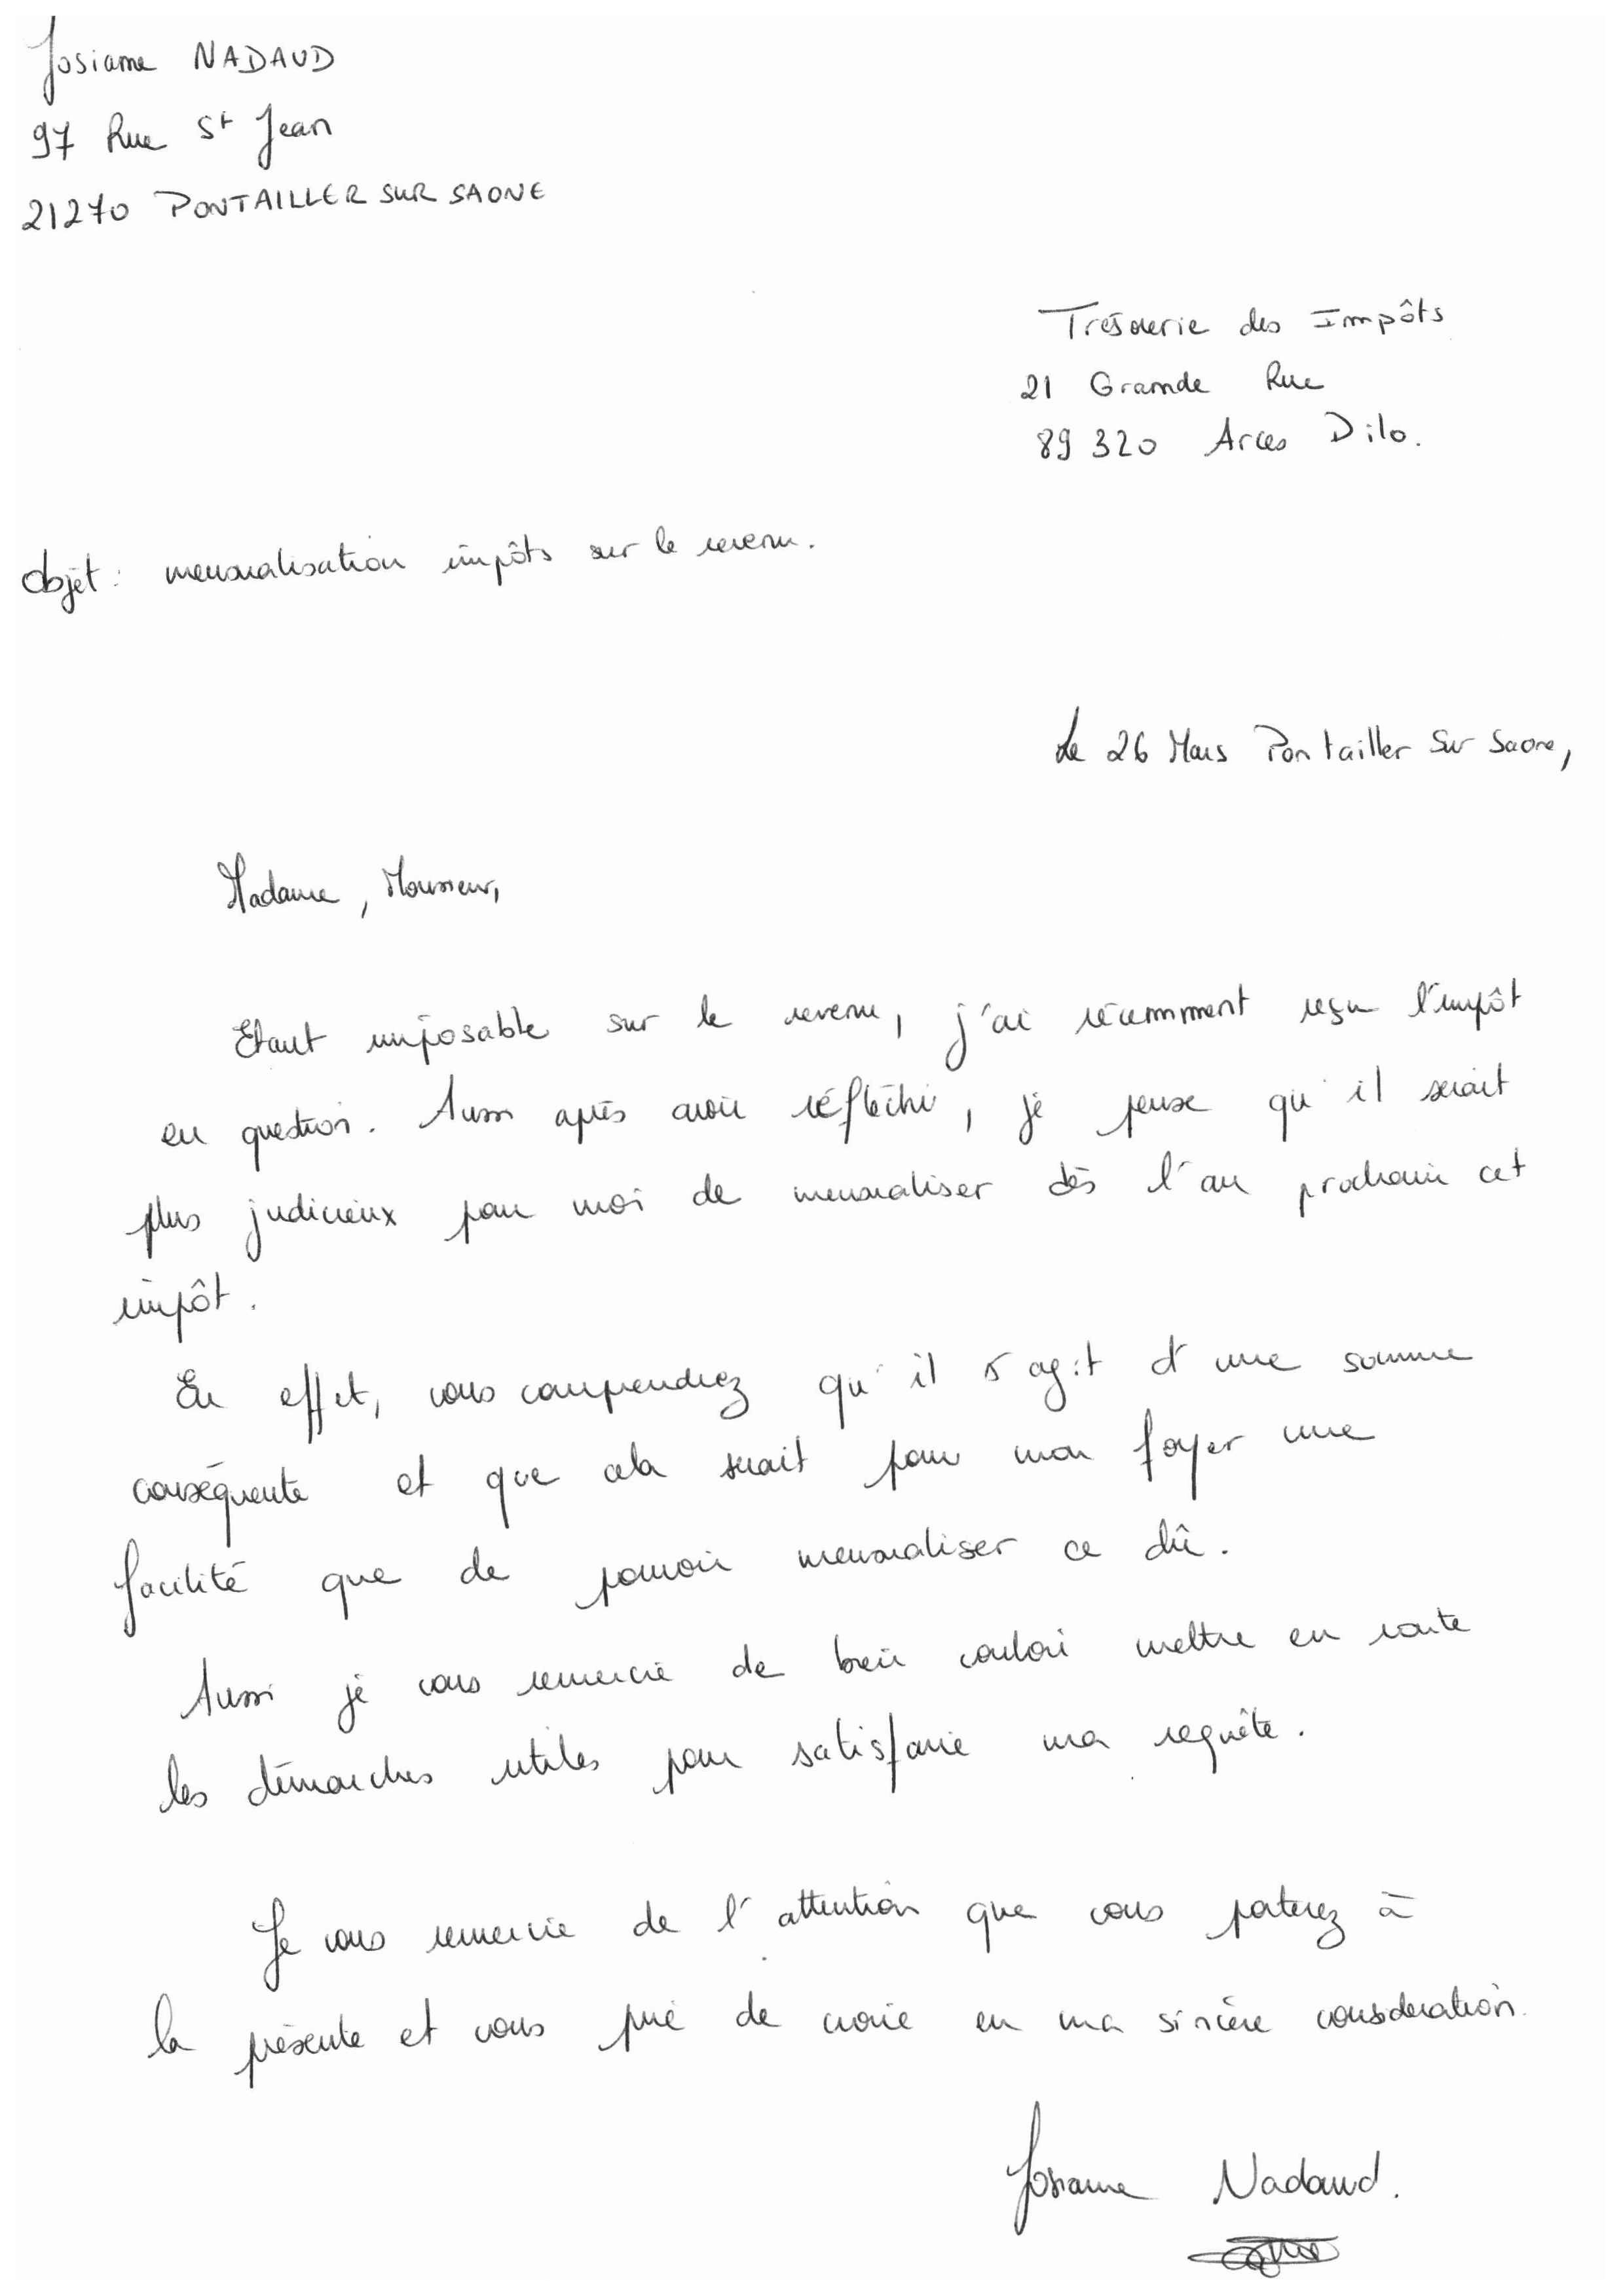 Josiane NADAUD
97 Rue St Jean
21270 PONTAILLER SUR SAONE
Trésorerie des Impôts
21 Grande Rue
89 320 Arces Dilo.
Objet : mensualisation impôts sur le revenu.
Le 26 Mars Pontailler Sur Saone,
Madame, Monsieur,
Etant imposable sur le revenu, j'ai récemment reçu l'impôt
en question. Aussi après avoir réfléchi, je pense qu'il serait
plus judicieux pour moi de mensualiser dès l'an prochain cet
impôt.
En effet, vous comprendrez qu'il s'agit d'une somme
conséquente et que cela serait pour mon foyer une
facilité que de pouvoir mensualiser ce dû.
Aussi je vous remercie de bien vouloir mettre en route
les démarches utiles pour satisfaire ma requête.
Je vous remercie de l'attention que vous porterez à
la présente et vous prie de croire en ma sincère considération.
Josiane Nadaud.